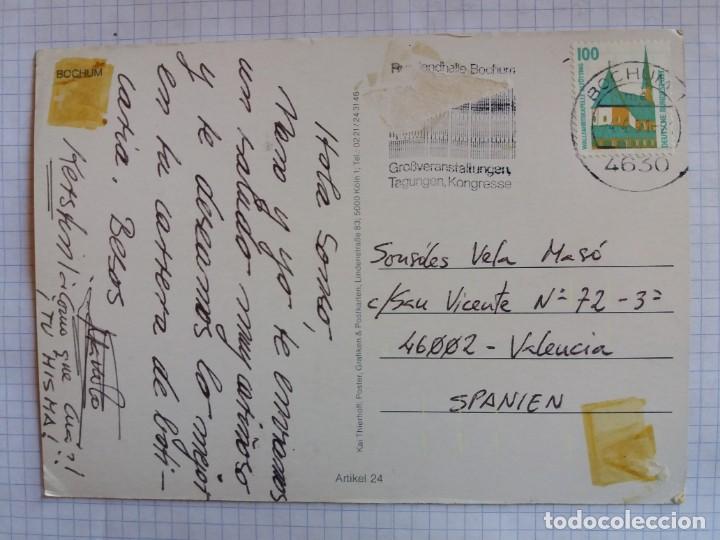 BOCHUM
Hola Sonso,
Nuro y yo te enviamos
un saludo muy cariñoso
y te deseamos lo mejor
en tu carrera de boti-
caria. Besos
que
¡TU MISMA!
Kai Thierhoff, Poster, Grafiken & Postkarten, Lindenstraße 83, 5000 Köln 1, Tel.: 0221/243146
Artikel 24
Ruhrlandhalle Bochum
Großveranstaltungen,
Tagungen, Kongresse
100
WALLFAHRTSKAPELLE ALTÖTTING
DEUTSCHE BUNDESPOST
BOCHUM
4630
Sonsóles Vela Masó
c/San Vicente Nº 72 - 3ª
46002 - Valencia
SPANIEN
todocoleccion